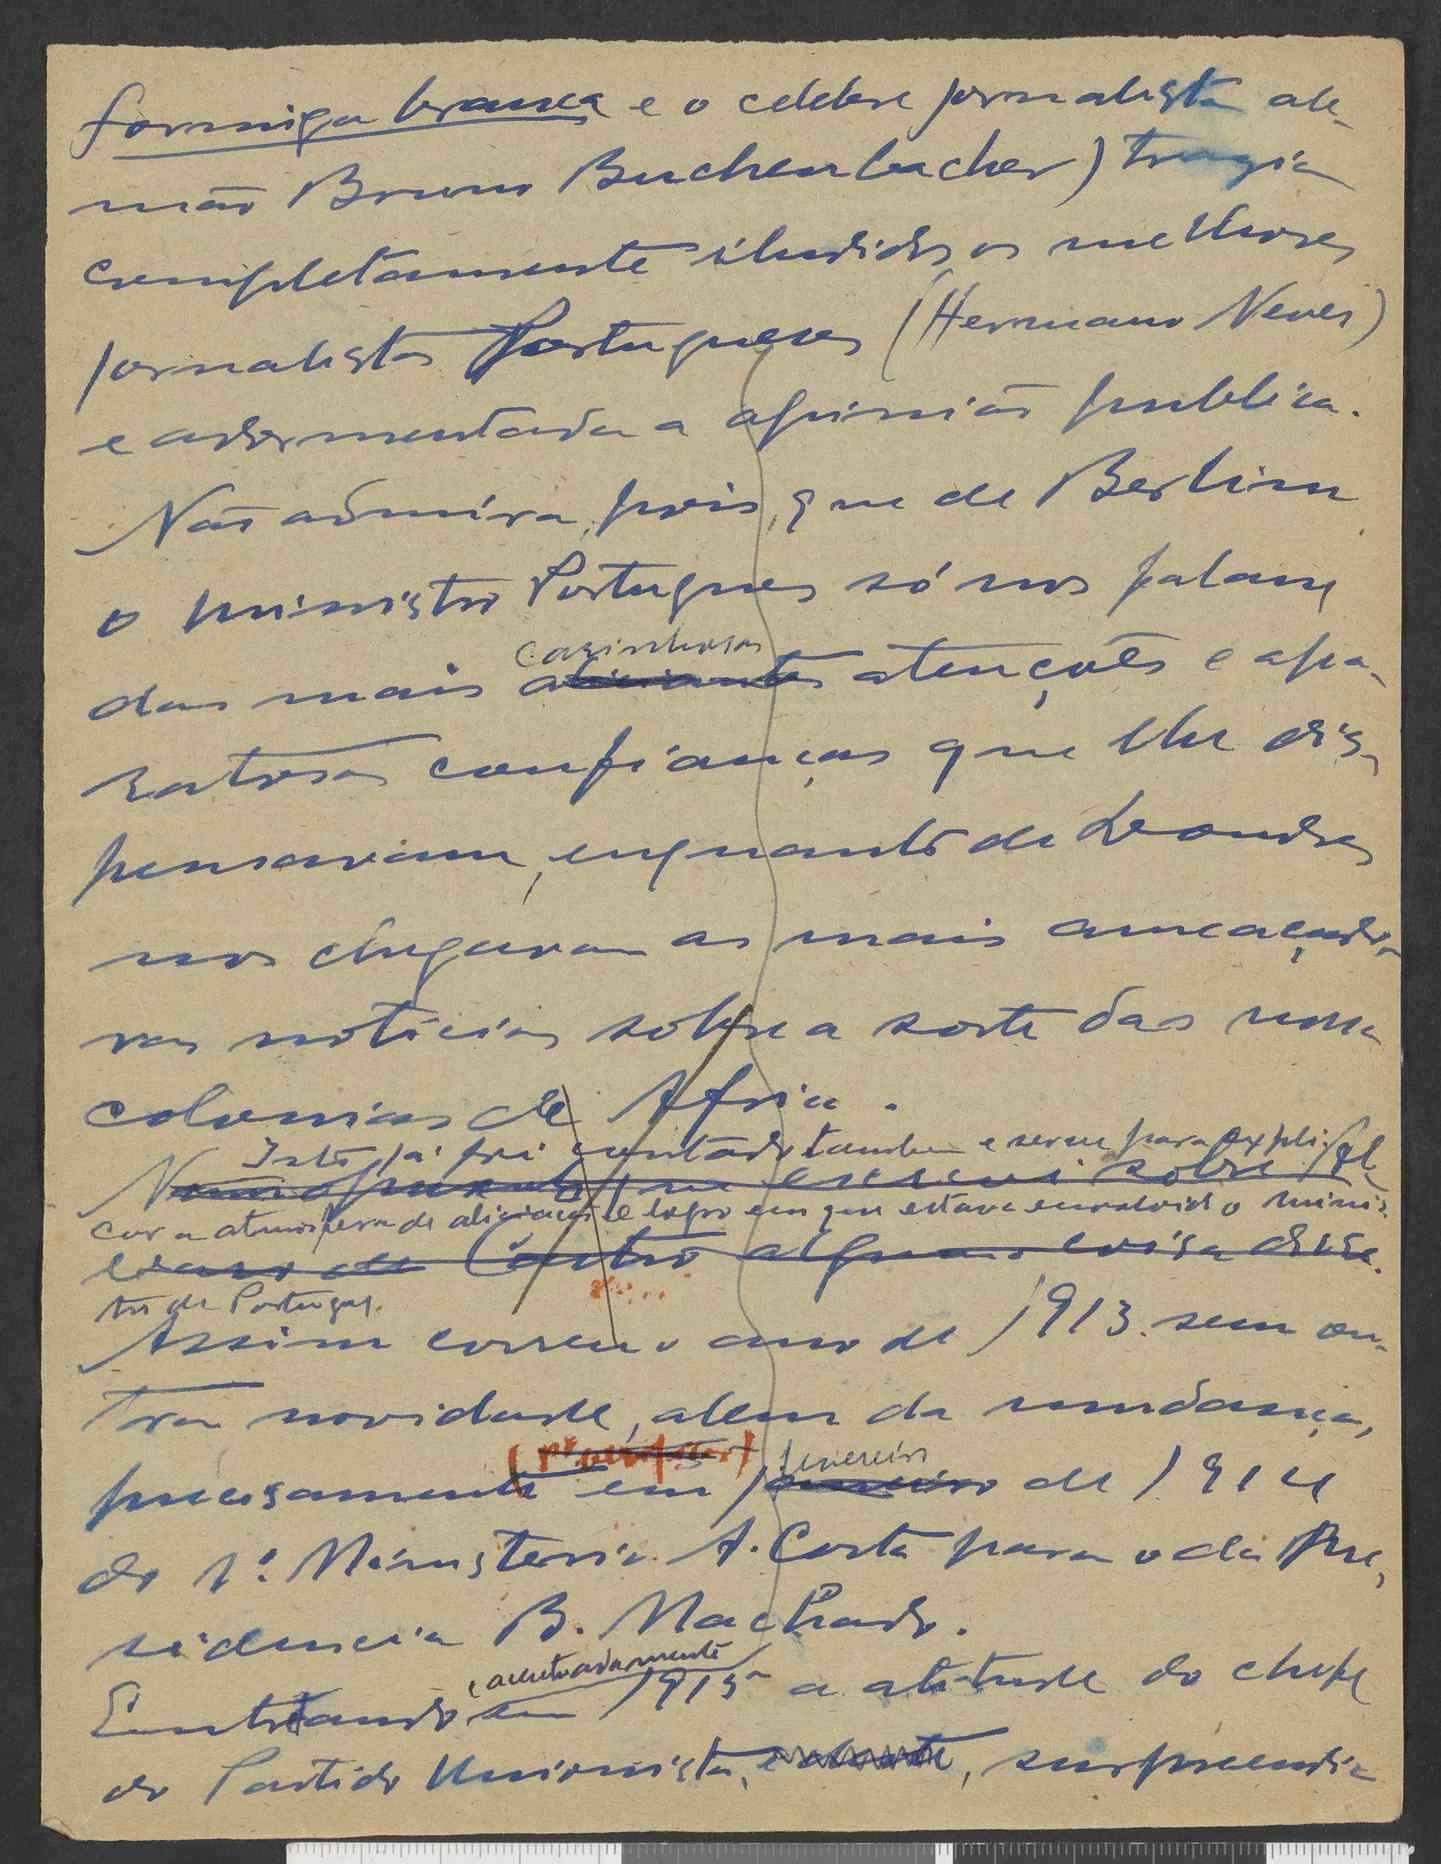 formiga branca e o celebre jornalista ale-
mão Bruno Buchenbacher) trazia
completamente iludidos os melhores
jornalistas Portugueses (Hermano Neves)
e adormentada a opinião publica.
Não admira, pois, que de Berlim
o ministro Portugues só nos falava
das mais carinhosas
atenções e apa-
ratosas confianças que lhe dis-
pensavam, enquanto de Londres
nos chegavam as mais ameaçado-
ras noticias sobre a sorte das nossas
colonias de Africa.
Isto já foi contado tambem e serve para expli-
car a atmosfera de aliciação e logro em que estava envolvido o minis-
tro de Portugal.
Assim correu o ano de 1913 sem ou-
tra novidade, alem da mudança,
fevereiro
precisamente em janeiro de 1914
do 1º Ministerio A. Costa para o da Pre-
sidencia B. Machado.
acentuadamente
Entrando em 1915 a atitude do chefe
do Partido Unionista, surpreendia